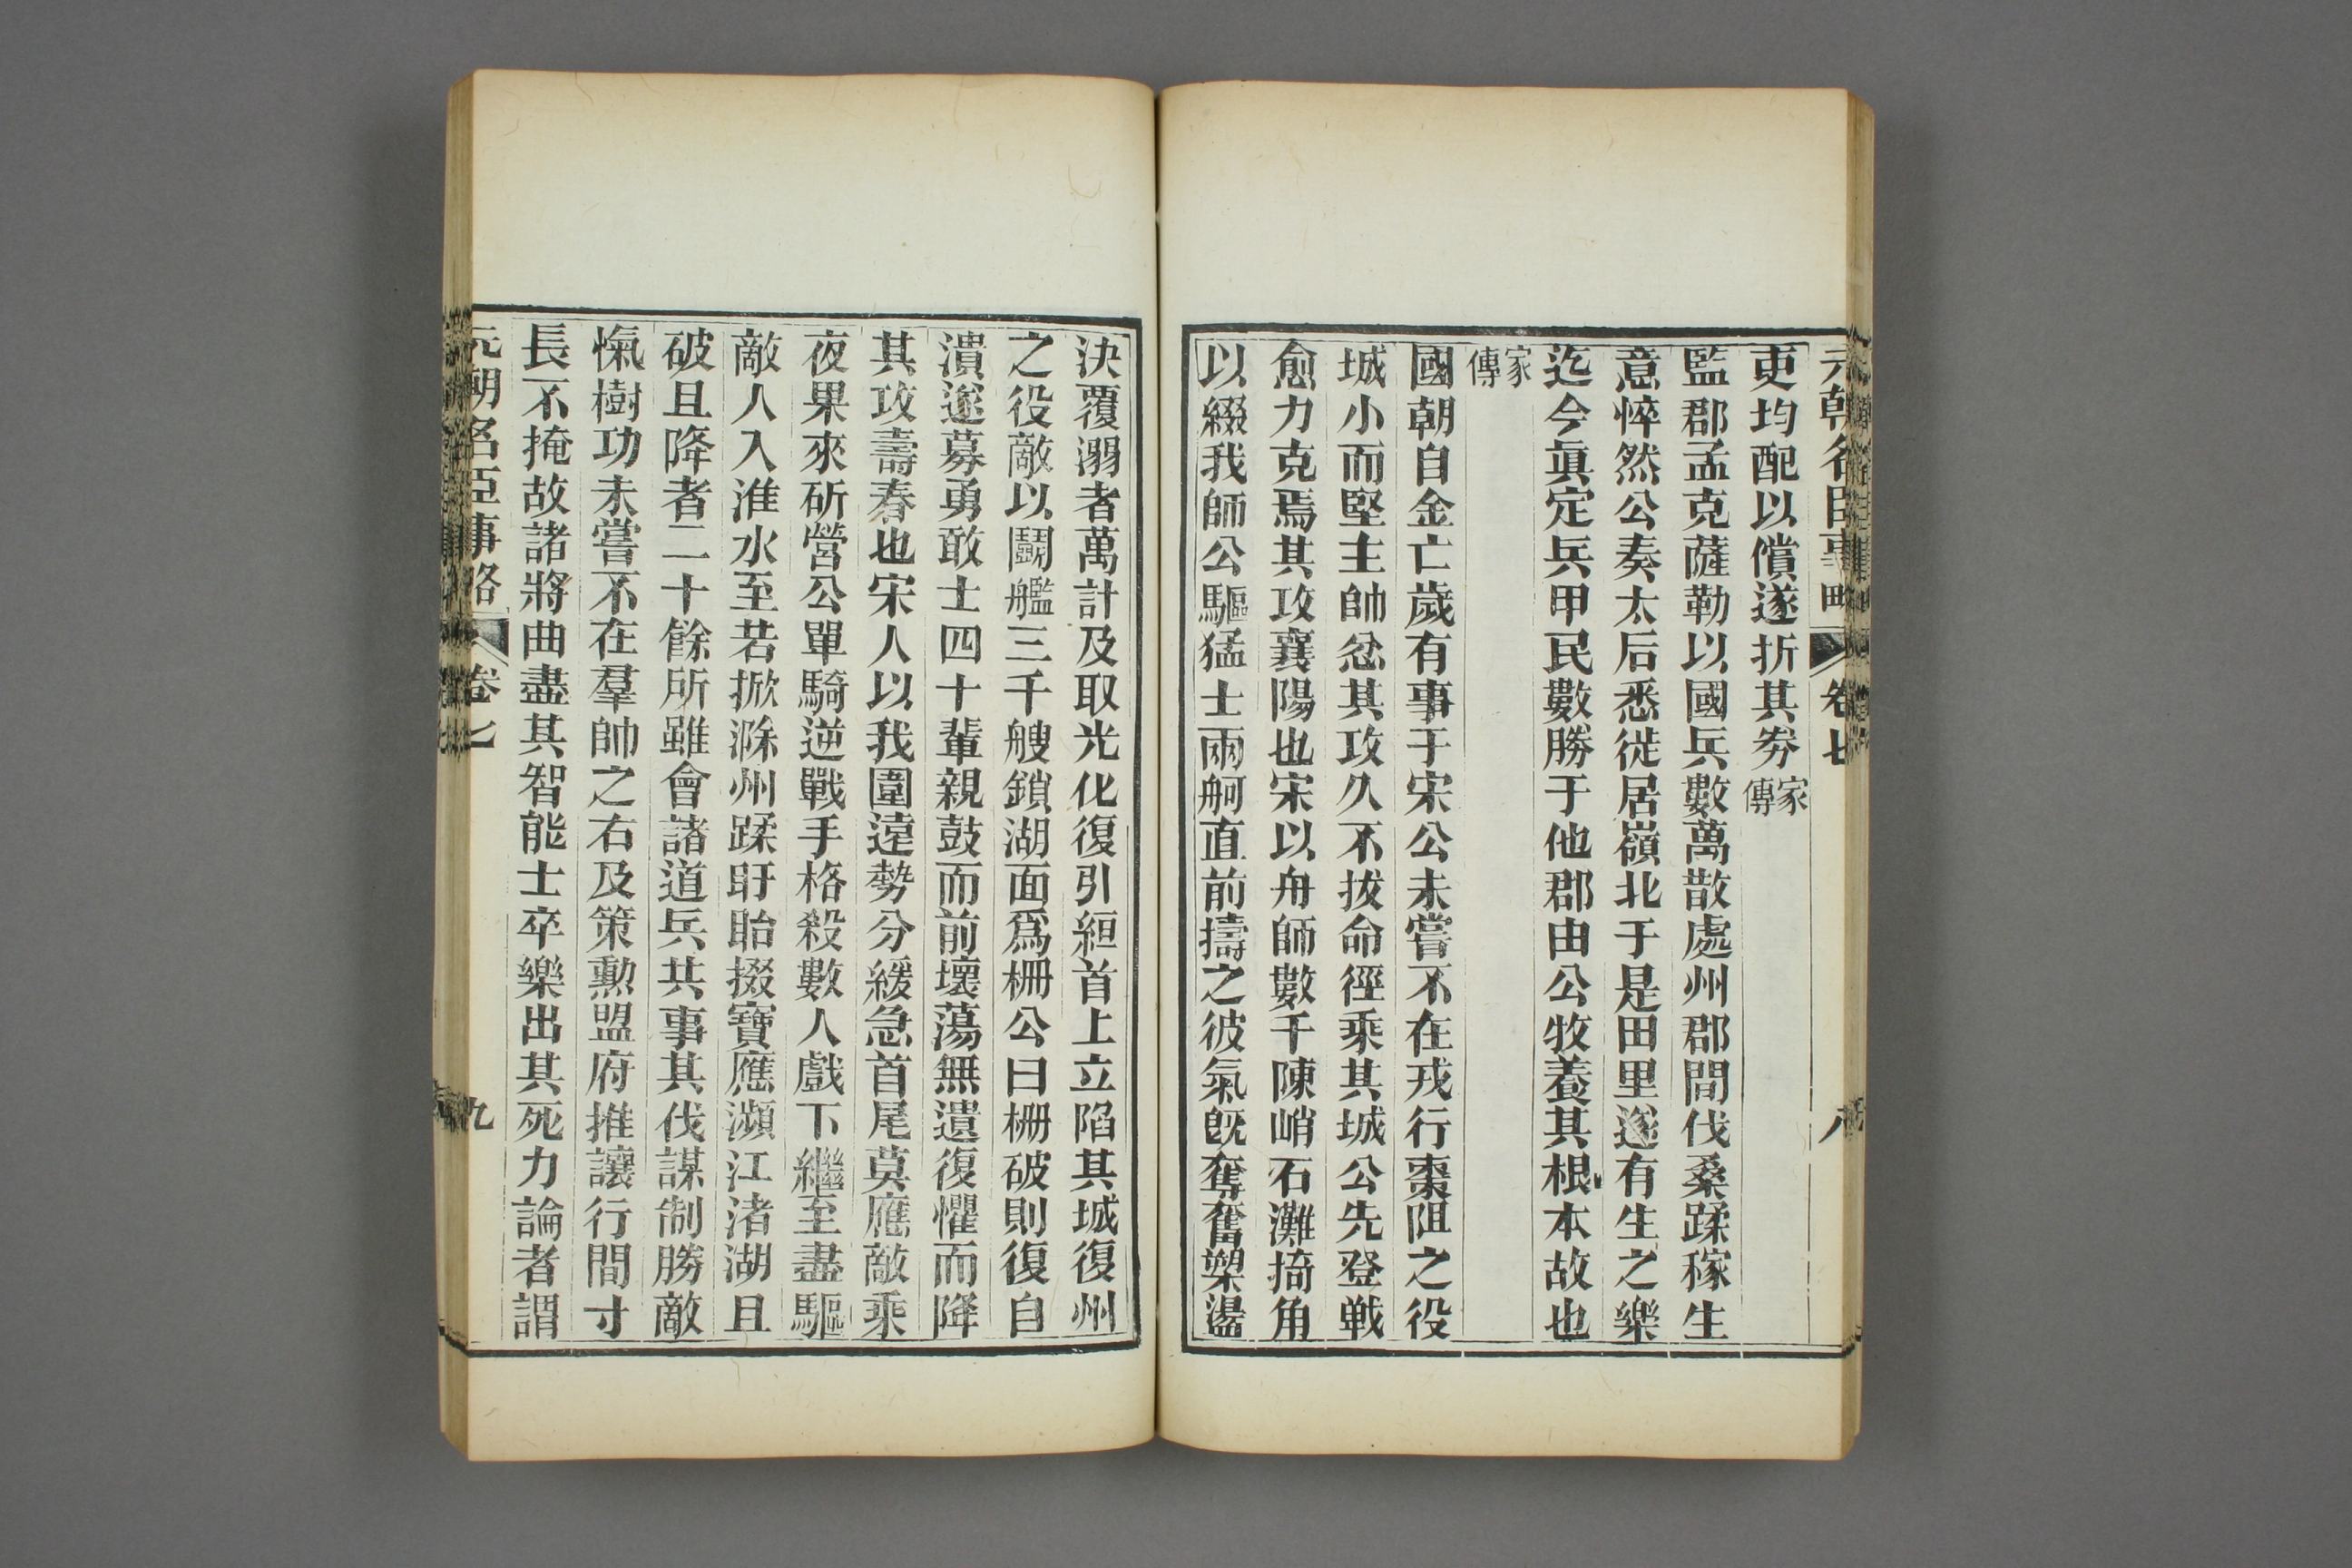 元朝名臣事略 卷七 八
吏均配以償遂折其劵家傳
監郡孟克薩勒以國兵數萬散處州郡間伐桑蹂稼生
意悴然公奏太后悉徙居嶺北于是田里遂有生之樂
迄今眞定兵甲民數勝于他郡由公牧養其根本故也
家傳
國朝自金亡歲有事于宋公未嘗不在戎行棗阻之役
城小而堅主帥忿其攻久不拔命徑乘其城公先登戰
愈力克焉其攻襄陽也宋以舟師數千陳峭石灘掎角
以綴我師公驅猛士兩舸直前擣之彼氣旣奪奮槊盪
決覆溺者萬計及取光化復引絙首上立陷其城復州
之役敵以鬭艦三千艘鎖湖面爲柵公曰柵破則復自
潰遂募勇敢士四十輩親鼓而前壞蕩無遺復懼而降
其攻壽春也宋人以我圍遠勢分緩急首尾莫應敵乘
夜果來斫營公單騎逆戰手格殺數人戲下繼至盡驅
敵人入淮水至若掀滁州蹂盱眙掇寶應瀕江渚湖且
破且降者二十餘所雖會諸道兵共事其伐謀制勝敵
愾樹功未嘗不在羣帥之右及策勳盟府推讓行間寸
長不掩故諸將曲盡其智能士卒樂出其死力論者謂
元朝名臣事略 卷七 九